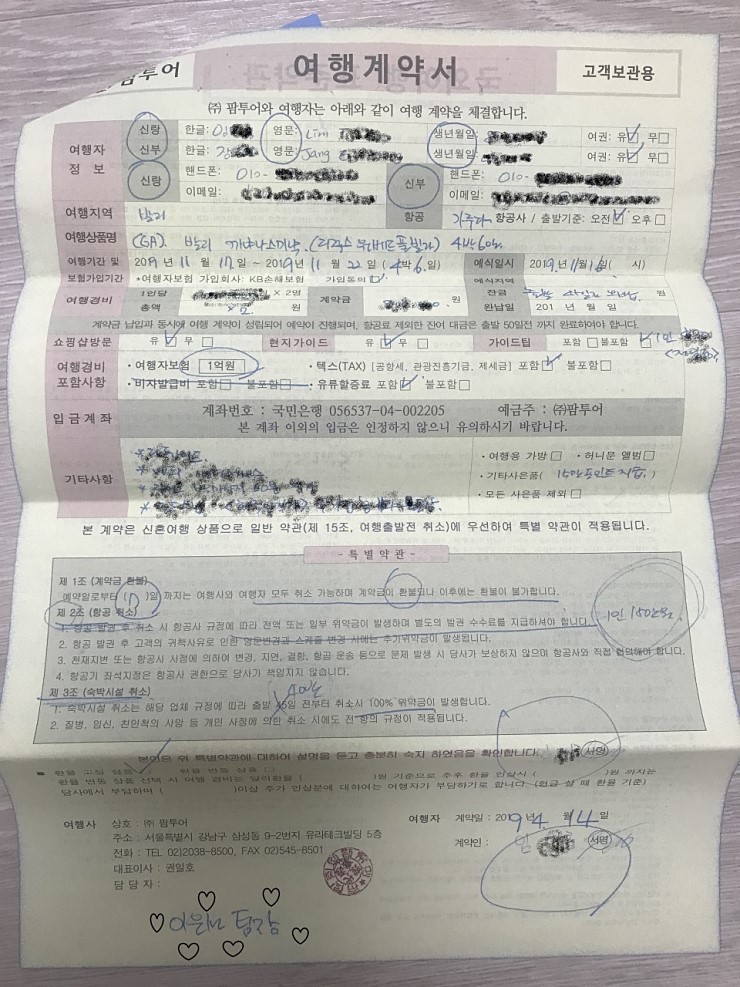 팜투어 여행계약서 고객보관용
㈜ 팜투어와 여행자는 아래와 같이 여행 계약을 체결합니다.
여행자 정 보
신랑 한글: 영문: Lim 생년월일: 여권: 유☑ 무☐
신부 한글: 영문: Jang 생년월일: 여권: 유☑ 무☐
신랑 핸드폰: 010- 신부 핸드폰: 010-
이메일: 이메일:
여행지역 발리 항공 가루다 항공사 / 출발기준: 오전☑ 오후☐
여행상품명 (GA). 발리 4박6일.
여행기간 및 2019년 11월 17일 ~ 2019년 11월 22일 (4박 6일) 예식일시 2019년 11월 16일 ( 시)
보험가입기간 •여행자보험 가입회사: KB손해보험 가입동의 예식지역
여행경비 1인당 × 2명 계약금 원 잔금 원
총액 완납일 201 년 월 일
계약금 납입과 동시에 여행 계약이 성립되어 예약이 진행되며, 항공료 제외한 잔여 대금은 출발 50일전 까지 완료하여야 합니다.
쇼핑샵방문 유☑ 무☐ 현지가이드 유☑ 무☐ 가이드팁 포함☐ 불포함☑ 1인
여행경비 포함사항
• 여행자보험 1억원 • 텍스(TAX) [공항세, 관광진흥기금, 제세금] 포함☑ 불포함☐
• 비자발급비 포함☐ 불포함☐ • 유류할증료 포함☑ 불포함☐
입금계좌 계좌번호 : 국민은행 056537-04-002205 예금주 : ㈜팜투어
본 계좌 이외의 입금은 인정하지 않으니 유의하시기 바랍니다.
기타사항
• 여행용 가방☐ • 허니문 앨범☐
• 기타사은품( 15만포인트 지급. )
• 모든 사은품 제외☐
본 계약은 신혼여행 상품으로 일반 약관(제 15조, 여행출발전 취소)에 우선하여 특별 약관이 적용됩니다.
- 특별약관 -
제 1조 (계약금 환불)
예약일로부터 (17)일 까지는 여행사와 여행자 모두 취소 가능하며 계약금이 환불되나 이후에는 환불이 불가합니다.
제 2조 (항공 취소)
1. 항공 발권 후 취소 시 항공사 규정에 따라 전액 또는 일부 위약금이 발생하며 별도의 발권 수수료를 지급하셔야 합니다. 1인 15만원.
2. 항공 발권 후 고객의 귀책사유로 인한 영문변경과 스케줄 변경 시에는 추가위약금이 발생됩니다.
3. 천재지변 또는 항공사 사정에 의하여 변경, 지연, 결항, 항공 운송 등으로 문제 발생 시 당사가 보상하지 않으며 항공사와 직접 협의해야 합니다.
4. 항공기 좌석지정은 항공사 권한으로 당사가 책임지지 않습니다.
제 3조 (숙박시설 취소)
1. 숙박시설 취소는 해당 업체 규정에 따라 출발 45일 전부터 취소시 100% 위약금이 발생합니다.
2. 질병, 임신, 친인척의 사망 등 개인 사정에 의한 취소 시에도 전 항의 규정이 적용됩니다.
본인은 위 특별약관에 대하여 설명을 듣고 충분히 숙지 하였음을 확인합니다. 서명
■ 환율 고정 상품 ☑ 환율 변동 상품 ☐
환율 변동 상품 선택 시 여행 경비는 달러환율( )원 기준으로 추후 환율 인상시( )원 까지는
당사에서 부담하며 ( )이상 추가 인상분에 대하여는 여행자가 부담하기로 합니다 (현금 살 때 환율 기준)
여행사 상호 : ㈜ 팜투어 여행자 계약일 : 2019년 4월 14일
주소 : 서울특별시 강남구 삼성동 9-2번지 유라테크빌딩 5층 계약인 : 서명
전화 : TEL 02)2038-8500, FAX 02)545-8501
대표이사 : 권일호
담 당 자 :
팀장